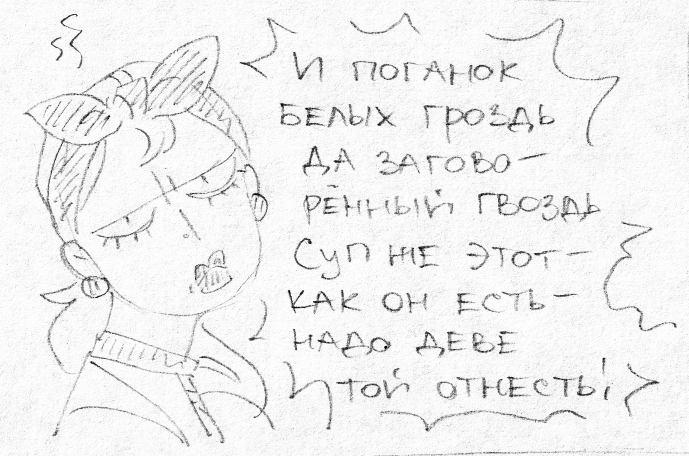 И ПОГАНОК
БЕЛЫХ ГРОЗДЬ
ДА ЗАГОВО-
РЁННЫЙ ГВОЗДЬ
СУП НЕ ЭТОТ-
КАК ОН ЕСТЬ-
НАДО ДЕВЕ
ТОЙ ОТНЕСТЬ!